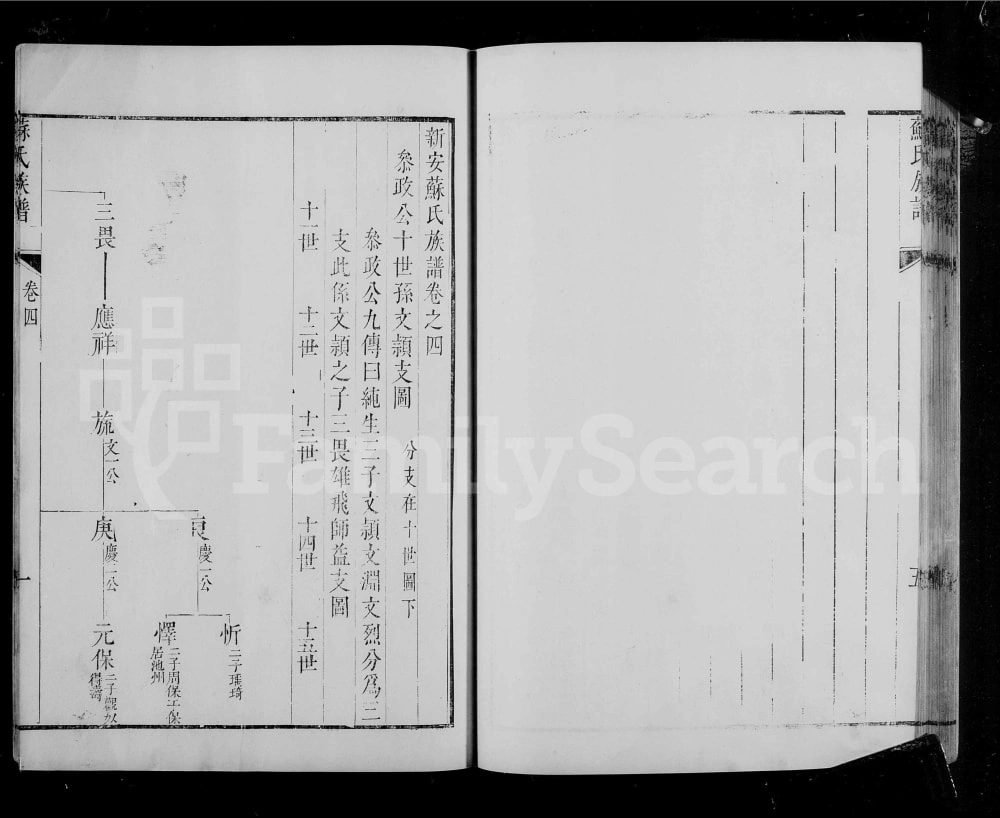 蘇氏族譜
五
新安蘇氏族譜卷之四
叅政公十世孫文頴支圖 分支在十世圖下
叅政公九傳曰純生三子文頴文淵文烈分爲三
支此係文頴之子三畏雄飛師益支圖
十一世 十二世 十三世 十四世 十五世
忻 二子瑀琦
㡽 慶一公
懌 二子周保工保
居池州
三畏 應祥 旒 文一公 庚 慶二公 元保 二子觀奴
得壽
蘇氏族譜 卷四 一
FamilySearch